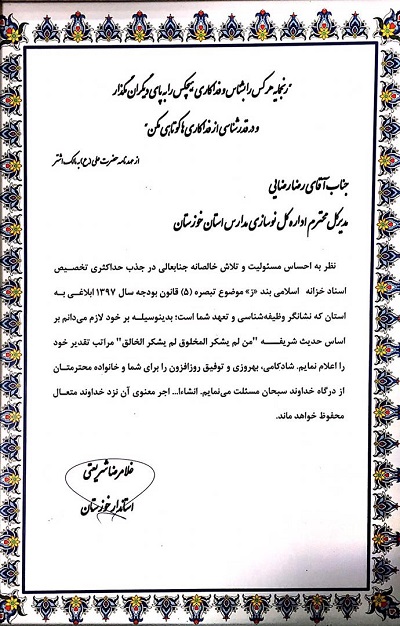 "رنجمایه هر کس را بشناس و فداکاری هیچکس را به پای دیگران مگذار
و در قدرشناسی از فداکاری ها کوتاهی مکن"
از عهدنامه حضرت علی (ع) به مالک اشتر
جناب آقای رضا رضایی
مدیرکل محترم اداره کل نوسازی مدارس استان خوزستان
نظر به احساس مسئولیت و تلاش خالصانه جنابعالی در جذب حداکثری تخصیص
اسناد خزانه اسلامی بند «ز» موضوع تبصره (۵) قانون بودجه سال ۱۳۹۷ ابلاغی به
استان که نشانگر وظیفه‌شناسی و تعهد شما است؛ بدینوسیله بر خود لازم می‌دانم بر
اساس حدیث شریفه "من لم یشکر المخلوق لم یشکر الخالق" مراتب تقدیر خود
را اعلام نمایم. شادکامی، بهروزی و توفیق روزافزون را برای شما و خانواده محترمتان
از درگاه خداوند سبحان مسئلت می‌نمایم. انشاءا... اجر معنوی آن نزد خداوند متعال
محفوظ خواهد ماند.
غلامرضا شریعتی
استاندار خوزستان